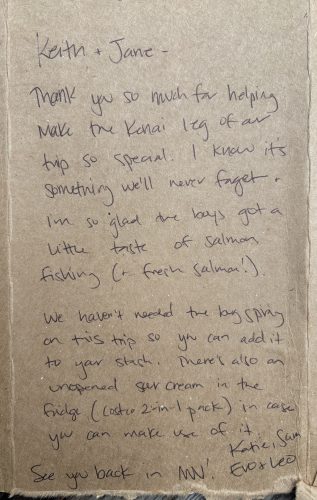 Keith + Jane -
Thank you so much for helping
make the Kenai leg of our
trip so special. I know it's
something we'll never forget.
I'm so glad the boys got a
little taste of salmon
fishing (+ fresh salmon!).
We haven't needed the bug spray
on this trip so you can add it
to your stash. There's also an
unopened sour cream in the
fridge (costco 2-in-1 pack) in case
you can make use of it.
See you back in MN!
Katie, Sam
Evo + Leo